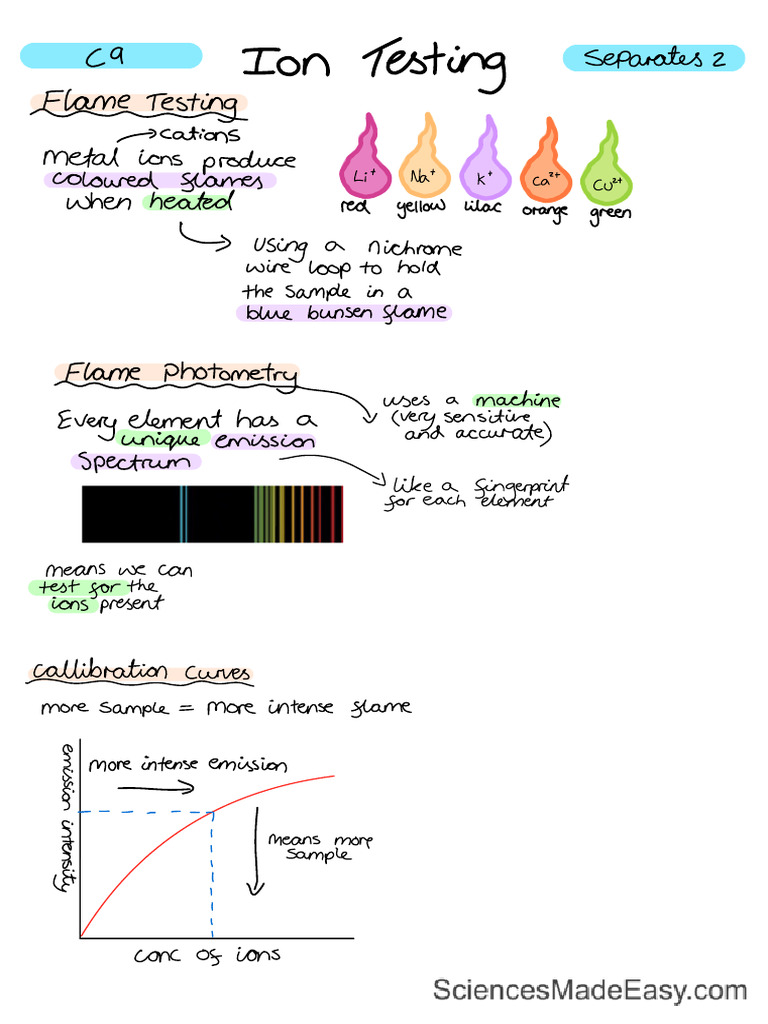 C9
Ion Testing
Separates 2
Flame Testing
cations
Metal ions produce
coloured flames
when heated
Li⁺
Na⁺
K⁺
Ca²⁺
Cu²⁺
red
yellow
lilac
orange
green
Using a nichrome
wire loop to hold
the sample in a
blue bunsen flame
Flame Photometry
uses a machine
(very sensitive
and accurate)
Every element has a
unique emission
spectrum
like a fingerprint
for each element
means we can
test for the
ions present
Callibration Curves
more sample = more intense flame
emission intensity
more intense emission
means more
sample
conc of ions
SciencesMadeEasy.com